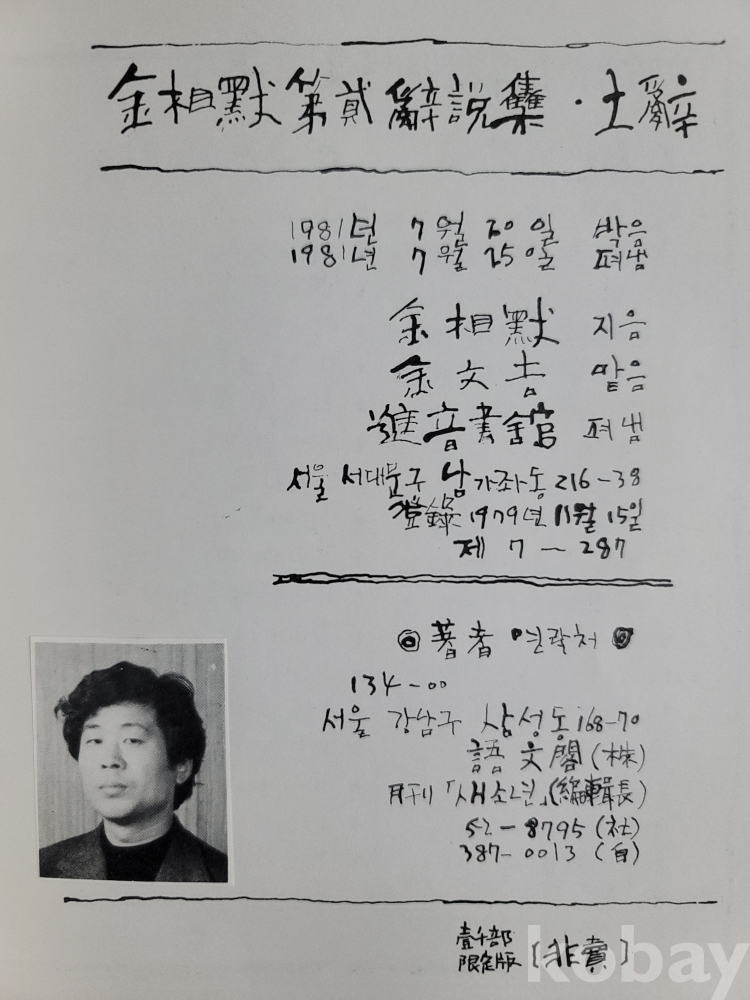 金相默第貳辭說集·土辭
1981년 7월 20일 박음
1981년 7월 25일 펴냄
金相默 지음
金文吉 맡음
進音書館 펴냄
서울 서대문구 남가좌동 216-38
登錄 1979년 11월 15일
제 7-287
◎ 著者 연락처 ◎
134-00
서울 강남구 삼성동 168-70
語文閣(株)
月刊「새소년」(編輯長)
52-8795 (社)
387-0013 (自)
壹千部
限定版 [非賣]
kobay